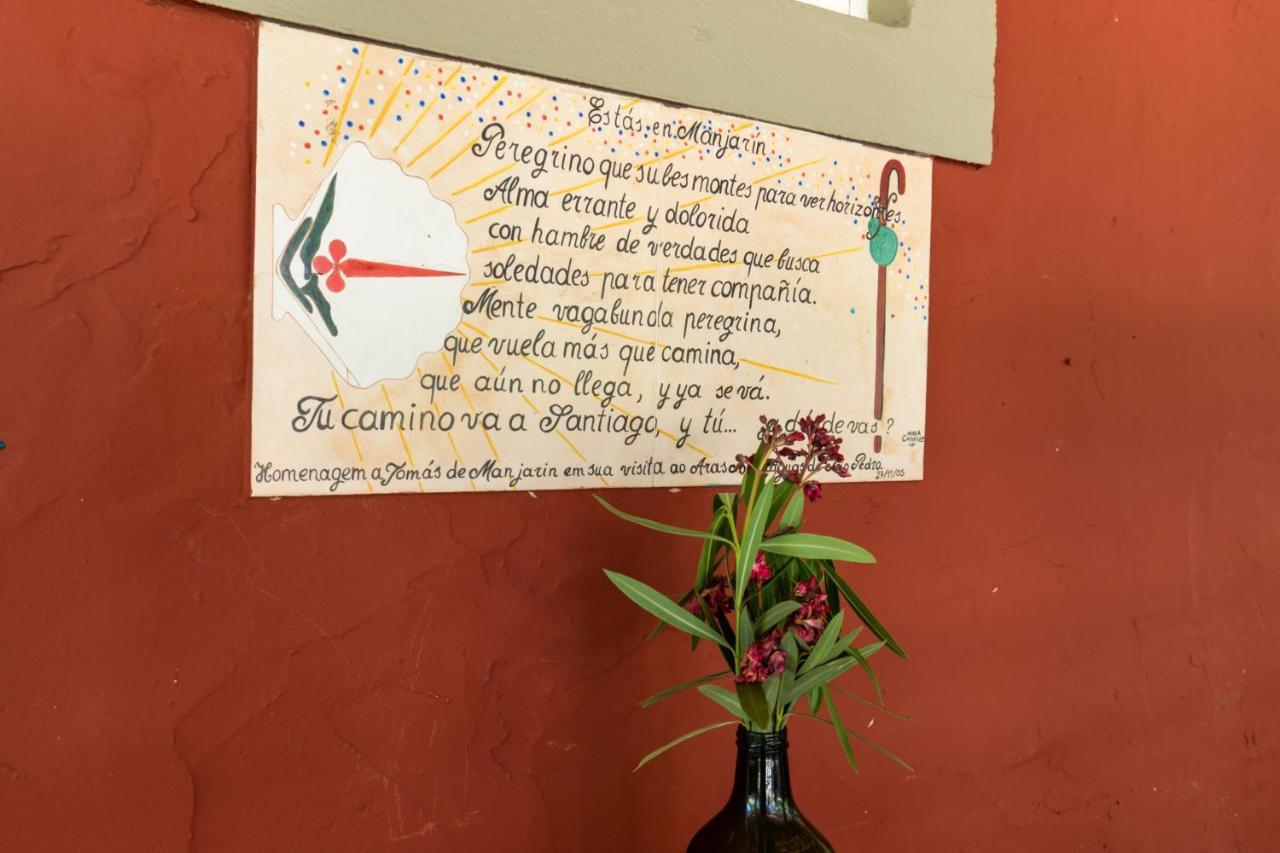 Estás en Manjarín
Peregrino que subes montes para ver horizontes
Alma errante y dolorida
con hambre de verdades que busca
soledades para tener compañía.
Mente vagabunda peregrina,
que vuela más que camina,
que aún no llega, y ya se vá.
Tu camino va a Santiago, y tú... vas?
Homenagem a Tomás de Manjarin em sua visita ao Pedro.
27/11/05